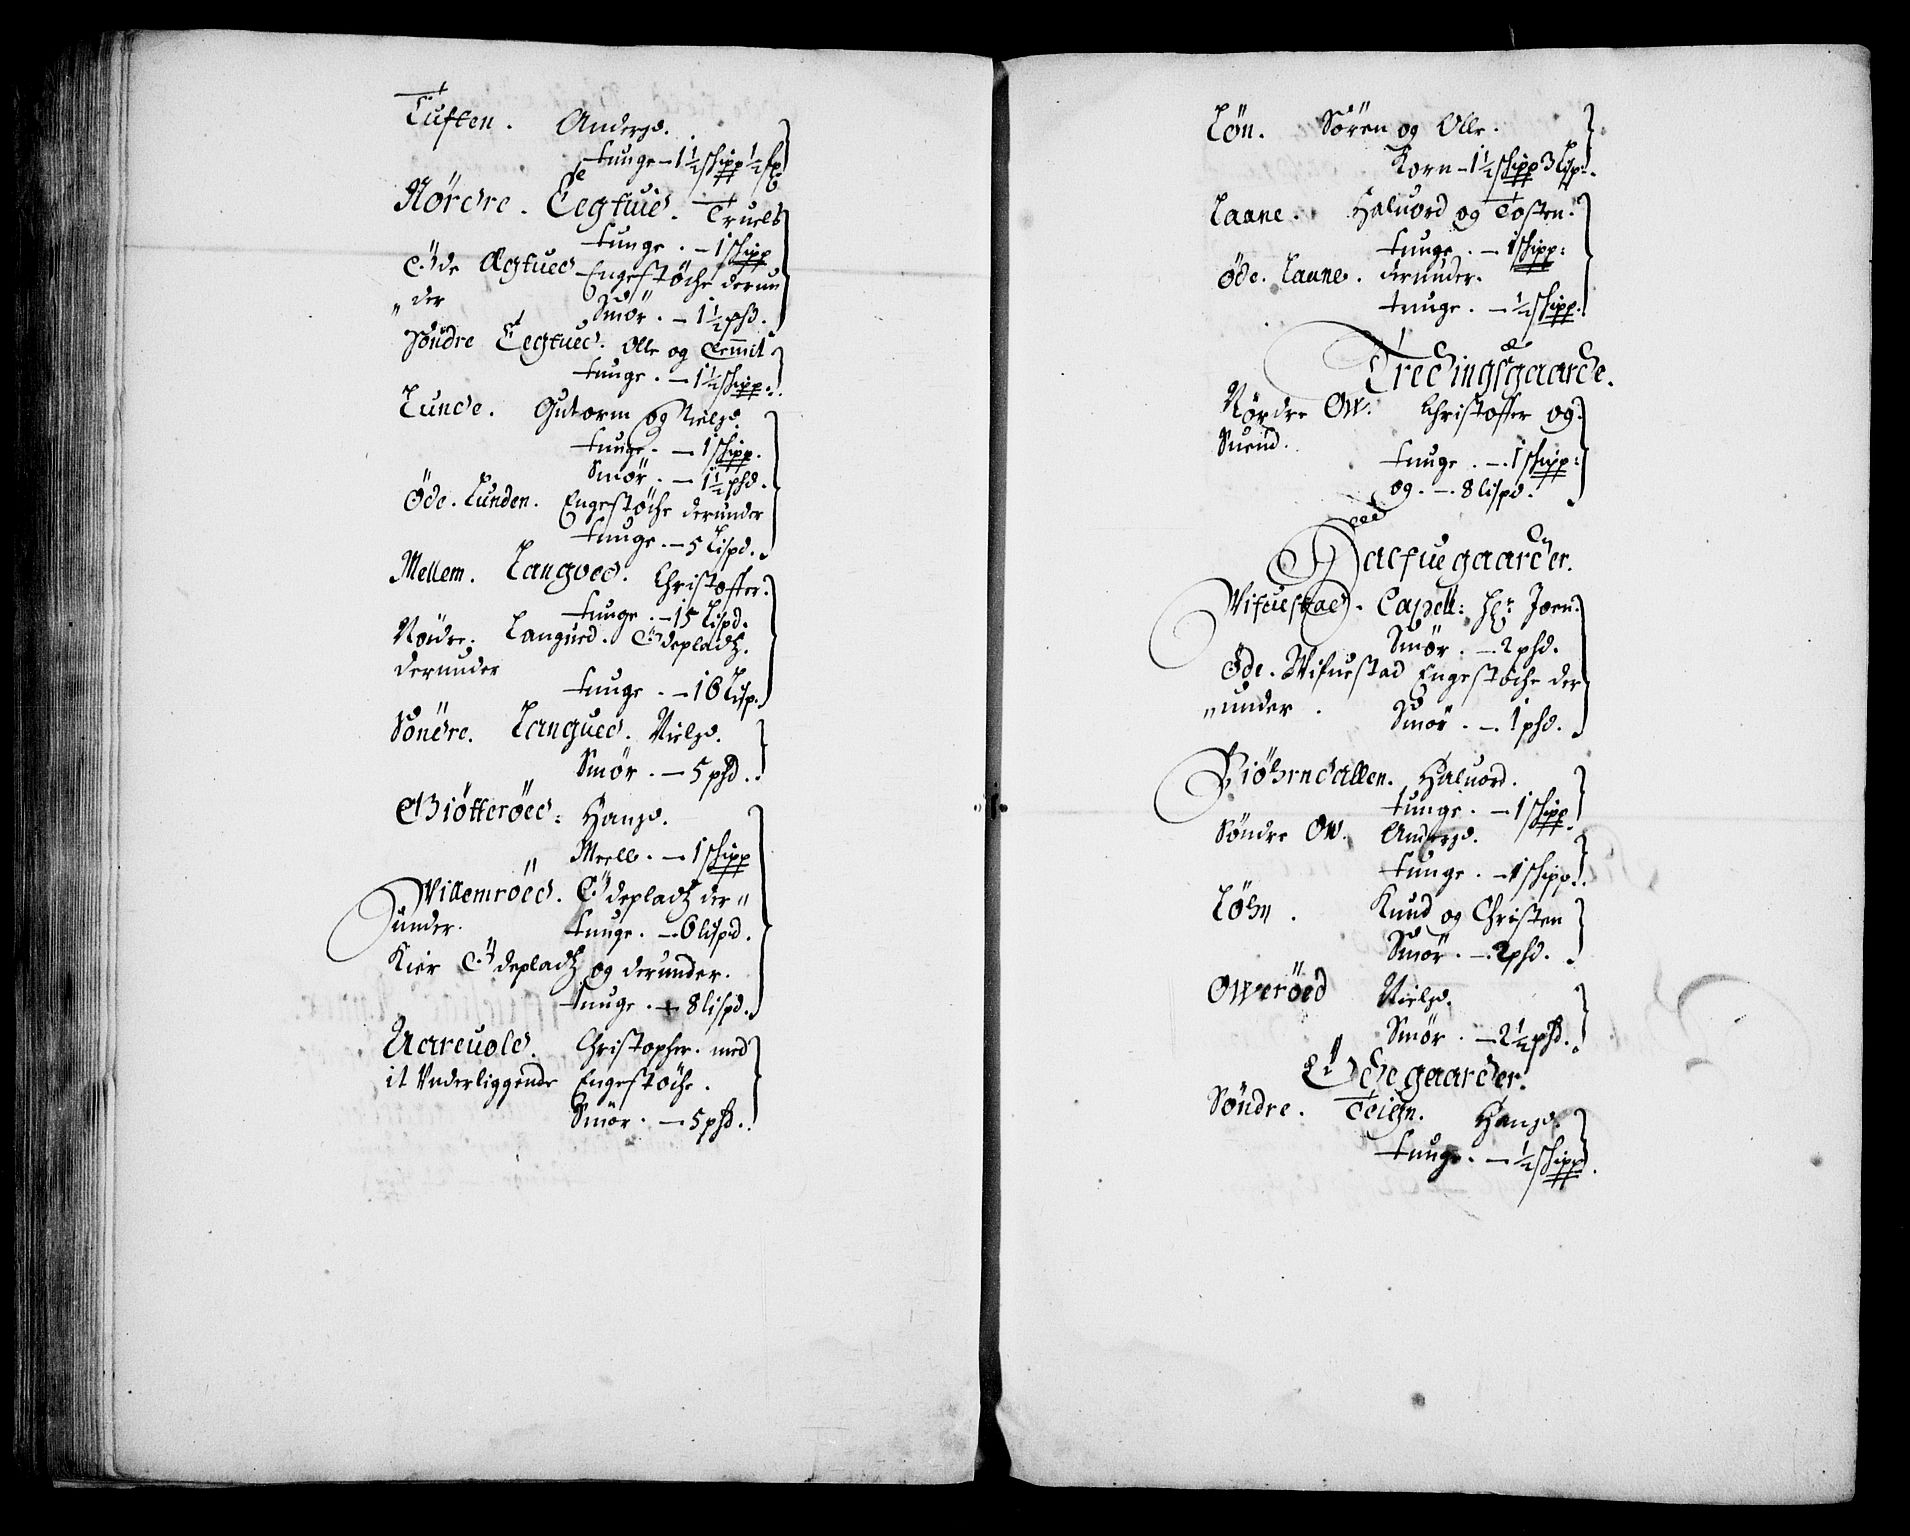 Tuften. Anderßd.
tunge - 1½ schipp ½ lp
Nördre. Eegtued. Truels
tunge. - 1 schipp
Öde Ægtued Engestöche derun
"der
Smör. - 1½ phd.
Söndre Eegtued. Olle og Temmit
tunge. - 1½ schipp.
Lunde. Gutorm og Nielßd.
tunge. - 1 schipp.
Smör. - 1½ phd.
Öde. Lunden. Engestöche derunder
tunge. - 5 Lispd.
Mellem. Langved. Christoffer.
tunge. - 15 Lispd.
Nördre. Langued. Ödepladtz.
derunder
tunge. - 16 Lisp.
Söndre. Langued. Nielßd.
Smör. - 5 phd.
Giötteröed. Hanßd.
Meelb. - 1 schipp
Willemröed. Ödepladtz der"
under. tunge. - 6 lispd.
Kier Ödepladtz og derunder.
tunge. - 8 lispd.
Aareuold. Christopher. med
it Underliggende Engestöche.
Smör. - 5 phd.
Lön. Sören og Olle.
Korn - 1½ schipp 3 Lisp.
Laane. Haluord og Tosten.
tunge. - 1 schipp:
Öde. Laane. derunder.
tunge. - ½ schipp.
Tredingsgaarde.
Nördre Ow. Christoffer og
Suend.
tunge. - 1 schipp:
og. - 8 lispd.
Halfuegaarder.
Wifuestad. Capell: Hr: Joen.
Smör. - 2 phd.
Öde. Wifuestad Engestöche der
"under. Smör. - 1 phd.
Biöhrndallen. Haluord.
tunge. - 1 schipp.
Söndre Ow. Anderßd.
tunge. - 1 schipp.
Löhn. Knud og Christen
Smör. - 2 phd.
Oweröed Nielßd.
Smör. - 2½ phd.
Ödegaarder.
Söndre. Teign. Hanßd.
tunge. - ½ schipp.